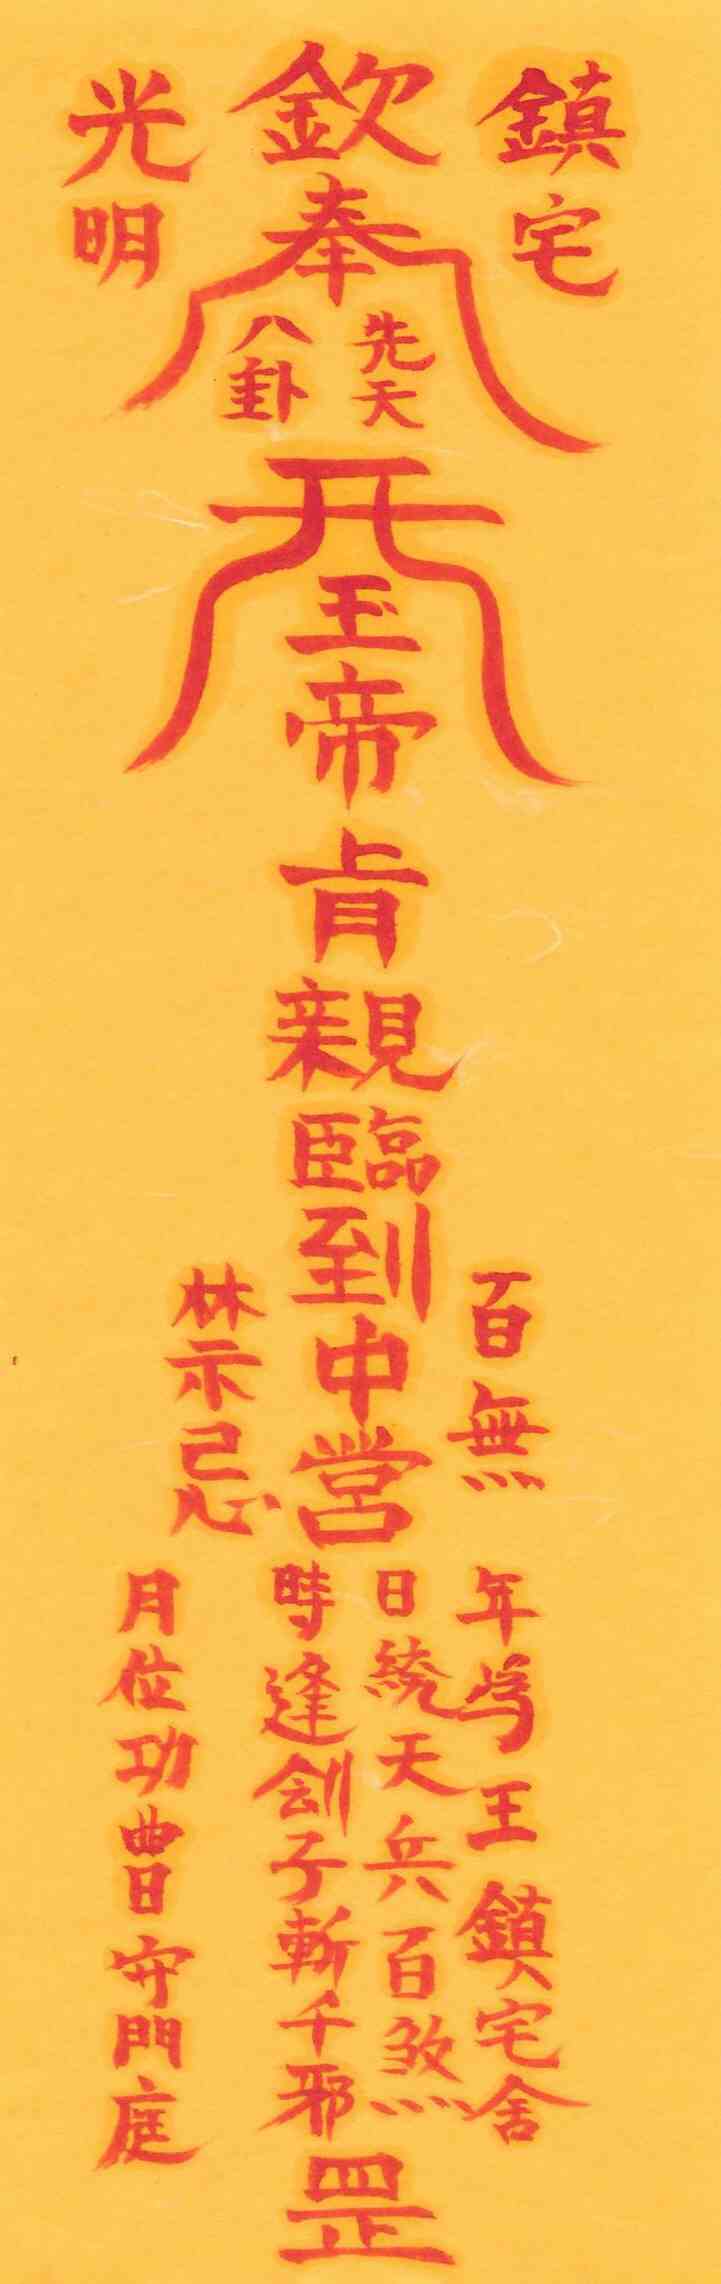 鎮宅
欽奉
光明
先天
八卦
开
玉帝肯親臨到中營
百無
禁忌
年王鎮宅舍
日統天兵百煞
時逢刽子斬千邪
月位功曹守門庭
罡